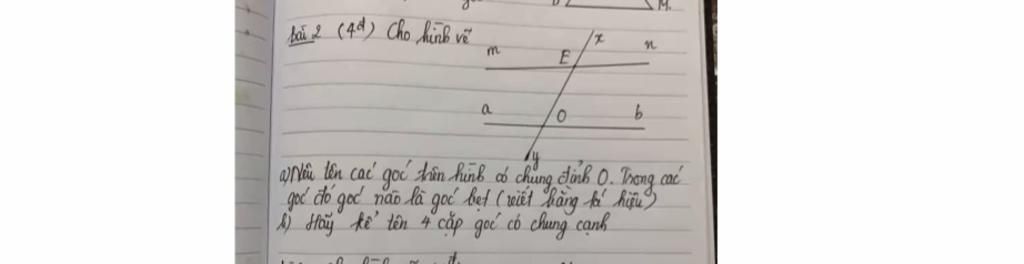 M.
bài 2 (4đ) Cho hình vẽ
x
m
E
n
a
O
b
y
a) Nêu tên các góc trên hình có chung đỉnh O. Trong các
góc đó góc nào là góc bẹt (viết bằng kí hiệu)
b) Hãy kể tên 4 cặp góc có chung cạnh